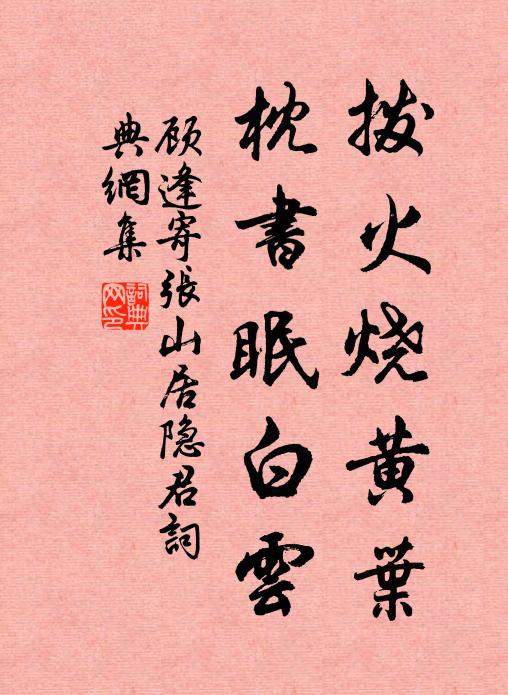 拨火烧黄葉
枕書眠白雲
顾逢寄张山居隐君詞
典網集
詞典网印